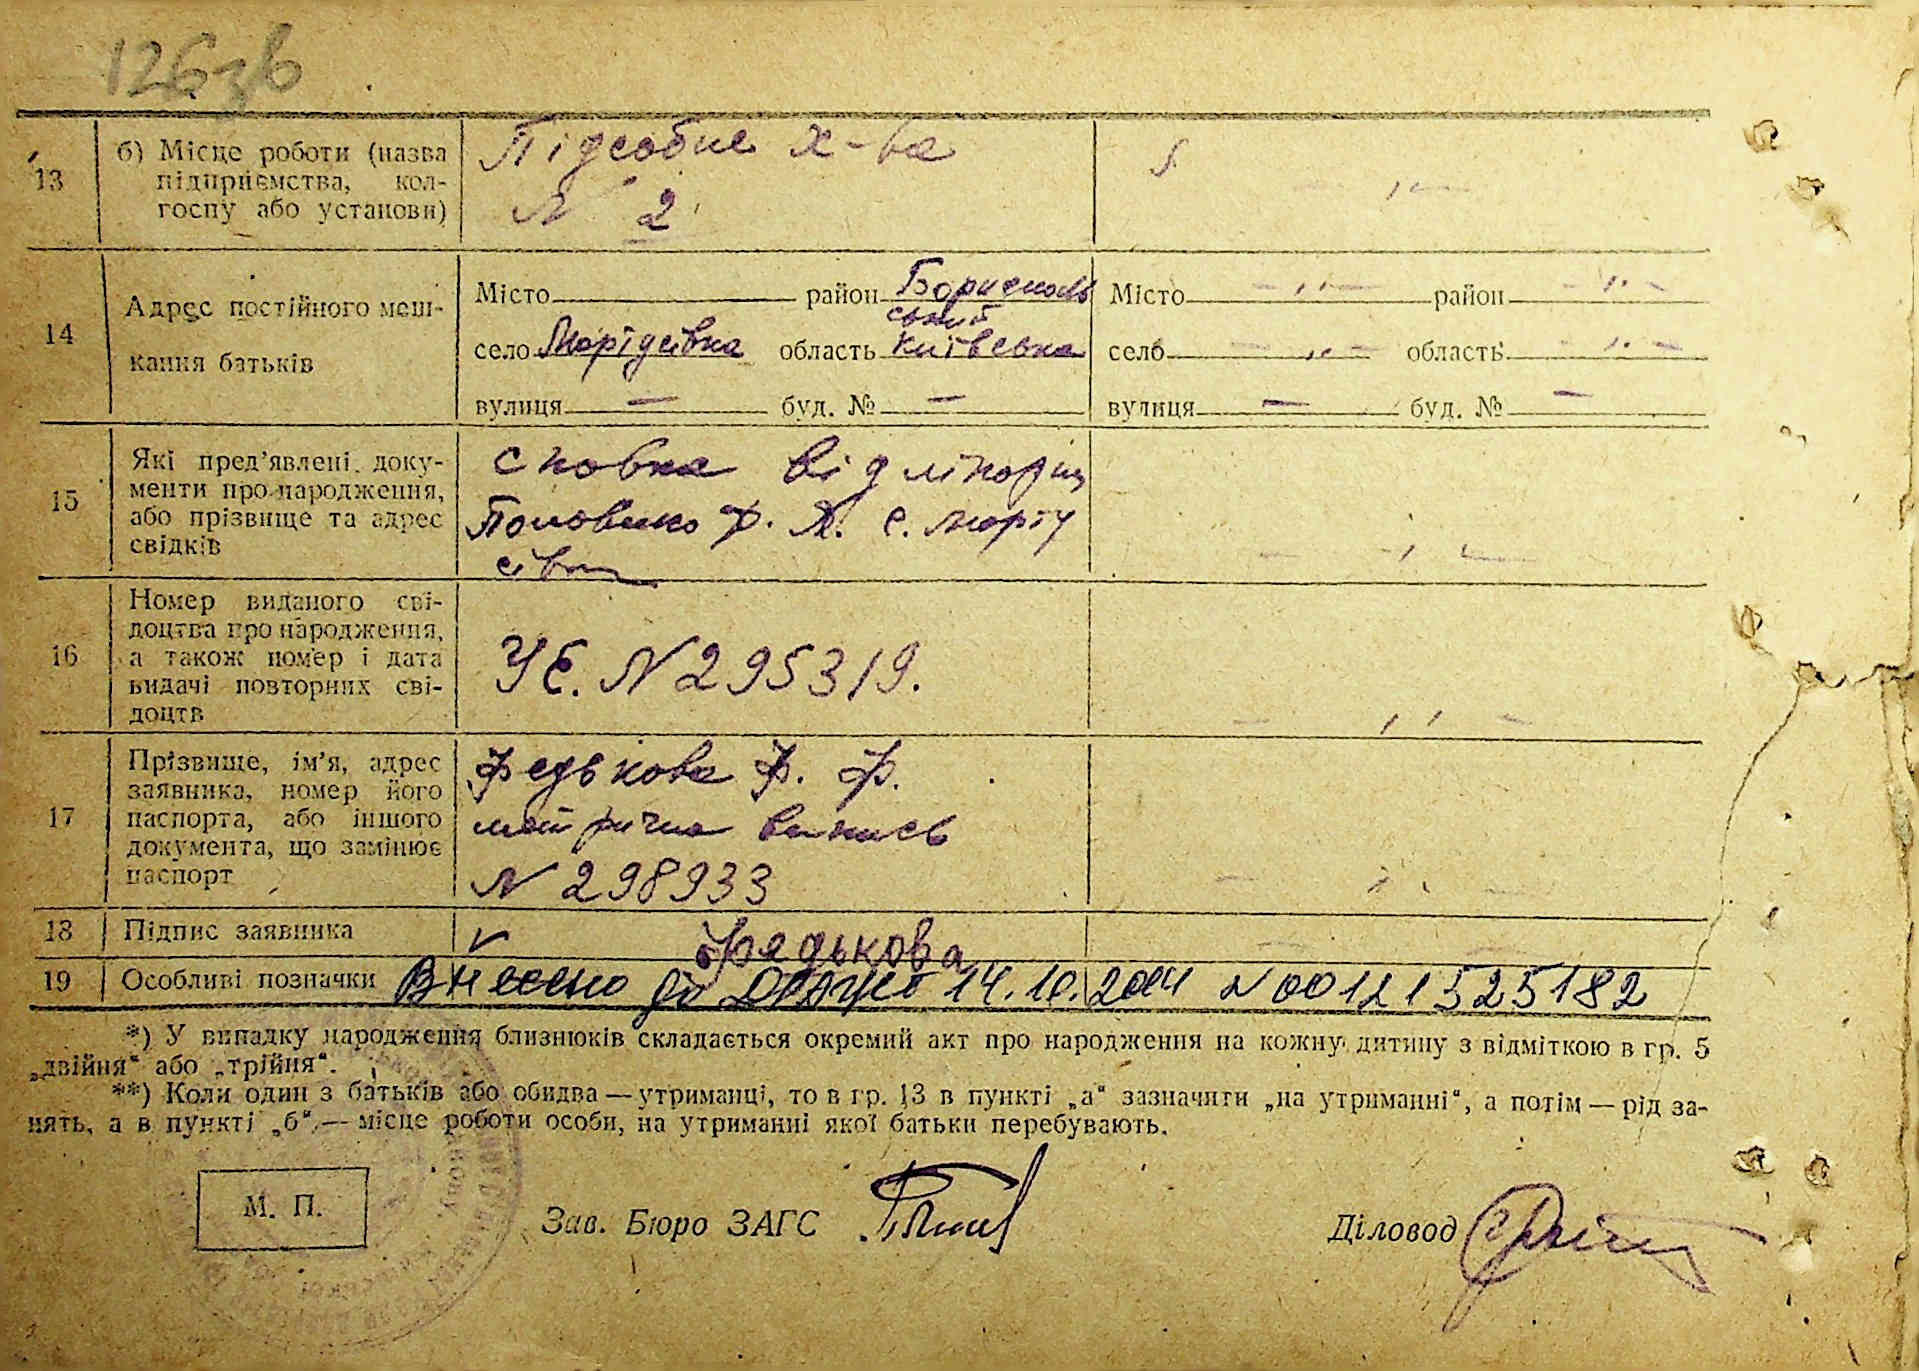 126зв
13
б) Місце роботи (назва
підприємства, кол-
госпу або установи)
Підсобне х-во
N 2
14
Адрес постійного меш-
кання батьків
Місто район Бориспольський Місто район
село Мартусівка область Київська село область
вулиця — буд. № — вулиця — буд. № —
15
Які пред'явлені документи про народження,
або прізвище та адрес
свідків
Справка від лікарні
Половико Ф. Х. с. Марту
сівка
16
Номер виданого сві-
доцтва про народження,
а також номер і дата
видачі повторних сві-
доцтв
УЕ. N 295319.
17
Прізвище, ім'я, адрес
заявника, номер його
паспорта, або іншого
документа, що замінює
паспорт
Федькова Ф. Ф.
метрична випись
N 298933
18 Підпис заявника Фядькова
19 Особливі позначки Внесено до ДРАЦС 14.10.2014 N 00121525182
*) У випадку народження близнюків складається окремий акт про народження на кожну дитину з відміткою в гр. 5
„двійня“ або „трійня“.
**) Коли один з батьків або обидва — утриманці, то в гр. 13 в пункті „а“ зазначити „на утриманні“, а потім — рід за-
нять, а в пункті „б“ — місце роботи особи, на утриманні якої батьки перебувають.
М. П.
Зав. Бюро ЗАГС
Діловод